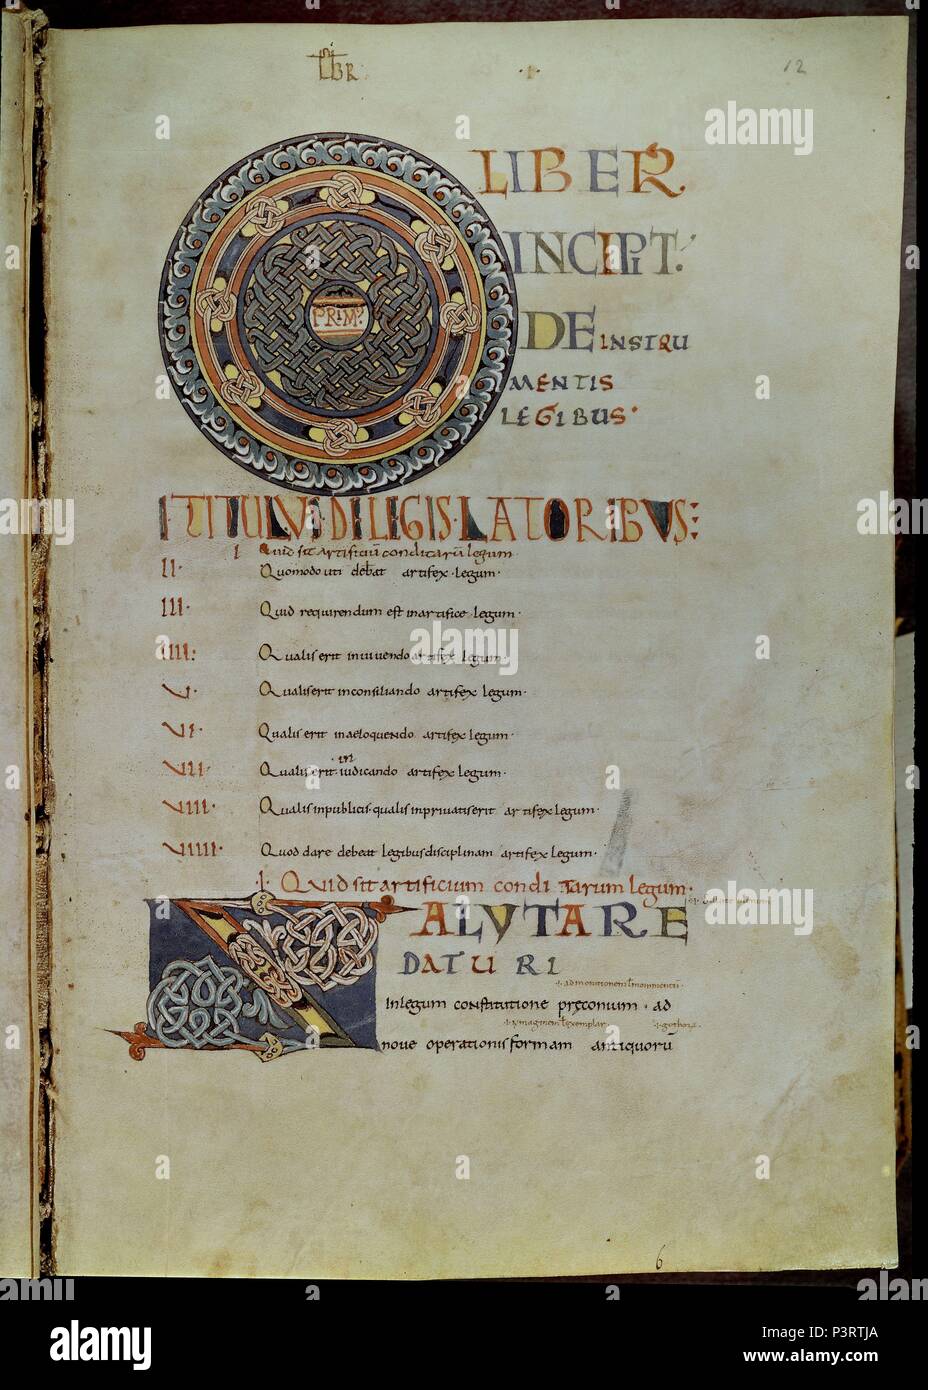 LBR · I · 12
LIBER
INCIPIT.
PRIM
DE INSTRU
MENTIS
LEGIBUS.
I. TITULUS. DE LEGISLATORIBUS:
I Quid sit artificiū conditarū legum.
II. Quomodo uti debeat artifex legum.
III. Quid requirendum est in artifice legum.
IIII: Qualis erit in vivendo artifex legum.
V. Qualis erit in consiliando artifex legum.
VI. Qualis erit in aeloquendo artifex legum.
VII. Qualis erit in iudicando artifex legum.
VIII. Qualis in publicis. qualis in privatis erit artifex legum.
VIIII. Quod dare debeat legibus disciplinam artifex legum.
I. Quid sit artificium conditarum legum.
SALUTARE
DATURI
.i. admonitionem
in legum constitutione preconum. ad
.i. ymaginem exemplar .i. gothorū
nove operationis formam antiquorū
6
alamy
alamy
Image ID: P3RTJA
www.alamy.com